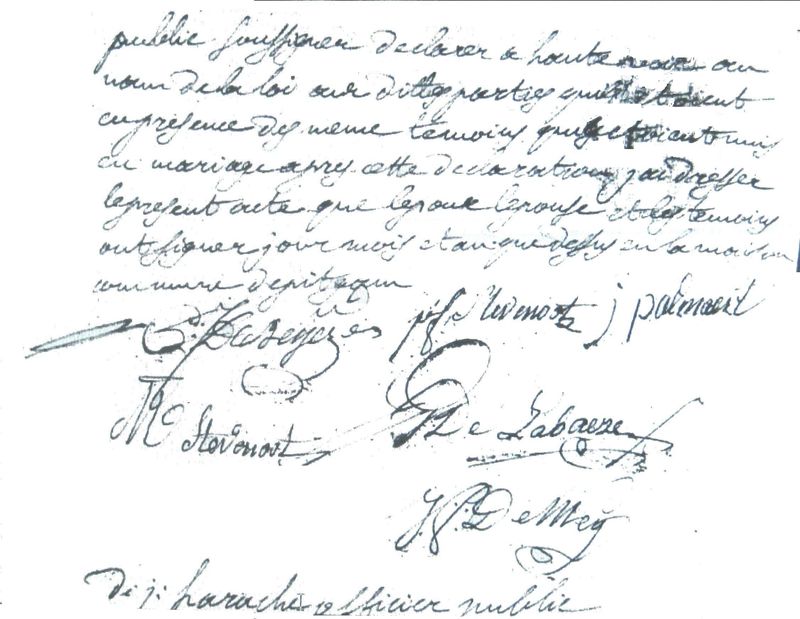 public soussigner declarer a haute voix au
nom de la loi aux dittes parties quil etoient
en présence des meme temoins quil etoient unis
en mariage apres cette declaration jai dresser
le present acte que lepoux lepouse et les temoins
ont signer jour mois et an que dessus en la maison
commune de
p j Stevenootz j palmaert
M Stevenoot De Labaeze
J.P. De Mey
D: j: harache officier public